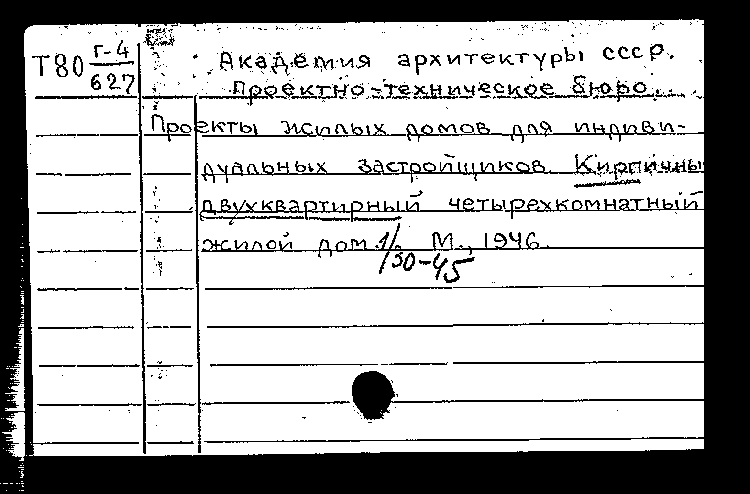 Т80 Г-4/627
Академия архитектуры СССР.
Проектно-техническое бюро.
Проекты жилых домов для индиви-
дуальных застройщиков. Кирпичны
двухквартирный четырехкомнатный
жилой дом М., 1946.
1/50-45